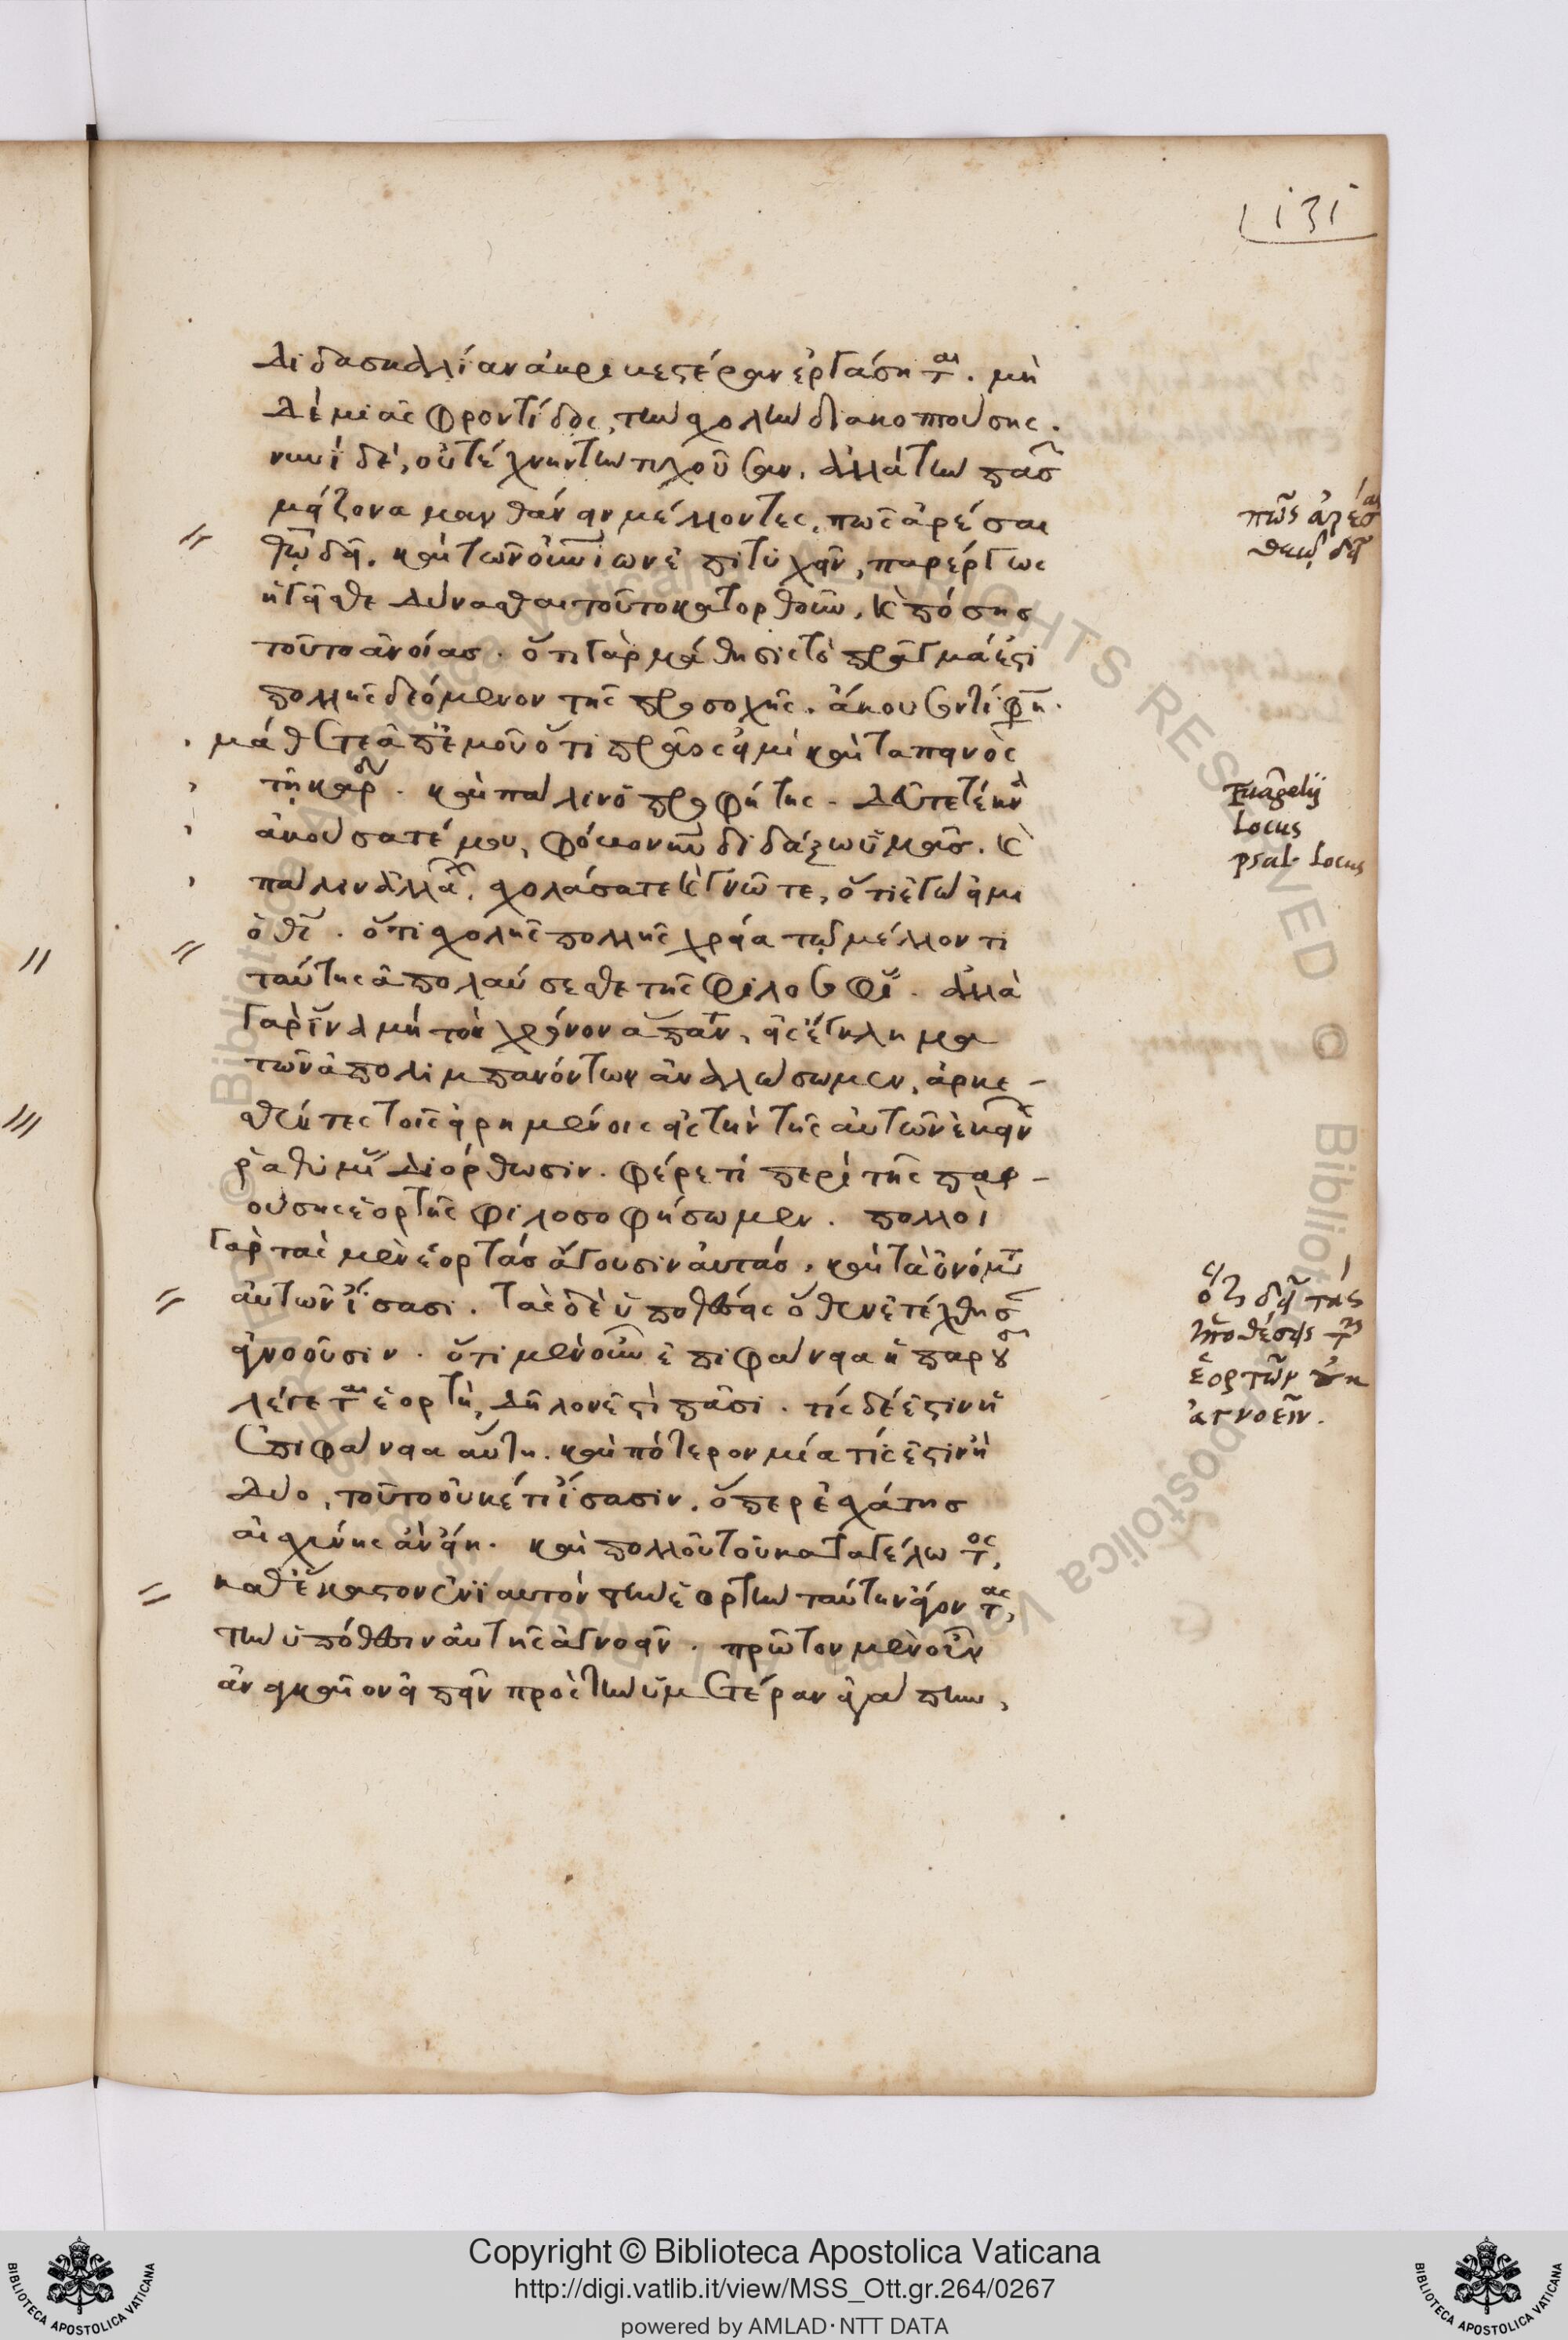 1 131
διδασκαλίαν ἀκριβεστέραν ἐργάσηται. μη
δεμιᾶς φροντίδος, τὴν σχολὴν διακοπτούσης.
νυνὶ δὲ, οὐ τέχνην τὴν τυχοῦσαν, ἀλλὰ τὴν πασῶν
μείζονα μανθάνειν μέλλοντες, πῶς ἀρέσαι
θεῷ δεῖ. καὶ τῶν οὐρανίων ἐπιτυχεῖν, παρέργως
ἡγεῖσθε δύνασθαι τοῦτο κατορθοῦν, καὶ πόσης
τοῦτο ἀνοίας. ὅτι γὰρ μάθησις τὸ πρᾶγμά ἐστι
πολλῆς δεόμενον τῆς προσοχῆς. ἄκουσον τί φησιν.
μάθετε ἀπ' ἐμοῦ ὅτι πρᾶός εἰμι καὶ ταπεινὸς
τῇ καρδίᾳ. καὶ πάλιν ὁ προφήτης. δεῦτε τέκνα
ἀκούσατέ μου, φόβον κυρίου διδάξω ὑμᾶς. καὶ
πάλιν ἀλλαχοῦ, σχολάσατε καὶ γνῶτε, ὅτι ἐγώ εἰμι
ὁ θεός. ὅτι σχολῆς πολλῆς χρεία τῷ μέλλοντι
ταύτης ἀπολαύσεσθαι τῆς φιλοσοφίας. ἀλλὰ
γὰρ ἵνα μὴ τὸν χρόνον ἅπαντα, εἰς ἔγκλημα
τῶν ἀπολιμπανόντων ἀναλώσωμεν, ἀρκε-
σθέντες τοῖς εἰρημένοις εἰς τὴν τῆς αὐτῶν ἐκείνων
ῥαθυμίας διόρθωσιν. φέρε τι περὶ τῆς παρ-
ούσης ἑορτῆς φιλοσοφήσωμεν. πολλοὶ
γὰρ τὰς μὲν ἑορτὰς ἄγουσιν αὐτάς, καὶ τὰ ὀνόματα
αὐτῶν ἴσασι. τὰς δὲ ὑποθέσεις ὅθεν ἐτέχθησαν
ἀγνοοῦσιν. ὅτι μὲν οὖν ἐπιφάνεια ἡ παροῦσα
λέγεται ἑορτὴ, δῆλόν ἐστι πᾶσι. τίς δέ ἐστιν ἡ
ἐπιφάνεια αὕτη. καὶ πότερον μία τίς ἐστιν ἢ
δύο, τοῦτο οὐκέτι ἴσασιν. ὅπερ ἐσχάτης
αἰσχύνης ἂν εἴη. καὶ πολλοῦ τοῦ καταγέλωτος,
καθ' ἕκαστον ἐνιαυτὸν τὴν ἑορτὴν ταύτην ἄγοντας,
τὴν ὑπόθεσιν αὐτῆς ἀγνοεῖν. πρῶτον μὲν οὖν
ἀναγκαῖον εἰπεῖν πρὸς τὴν ὑμετέραν ἀγάπην,
πῶς ἀρέσαι
θεῷ δεῖ
Euāgelij
Locus
psal. Locus
ὅτι δεῖ τὰς
ὑποθέσεις τῶν
ἑορτῶν οὐκ
ἀγνοεῖν.
Copyright © Biblioteca Apostolica Vaticana
http://digi.vatlib.it/view/MSS_Ott.gr.264/0267
powered by AMLAD·NTT DATA